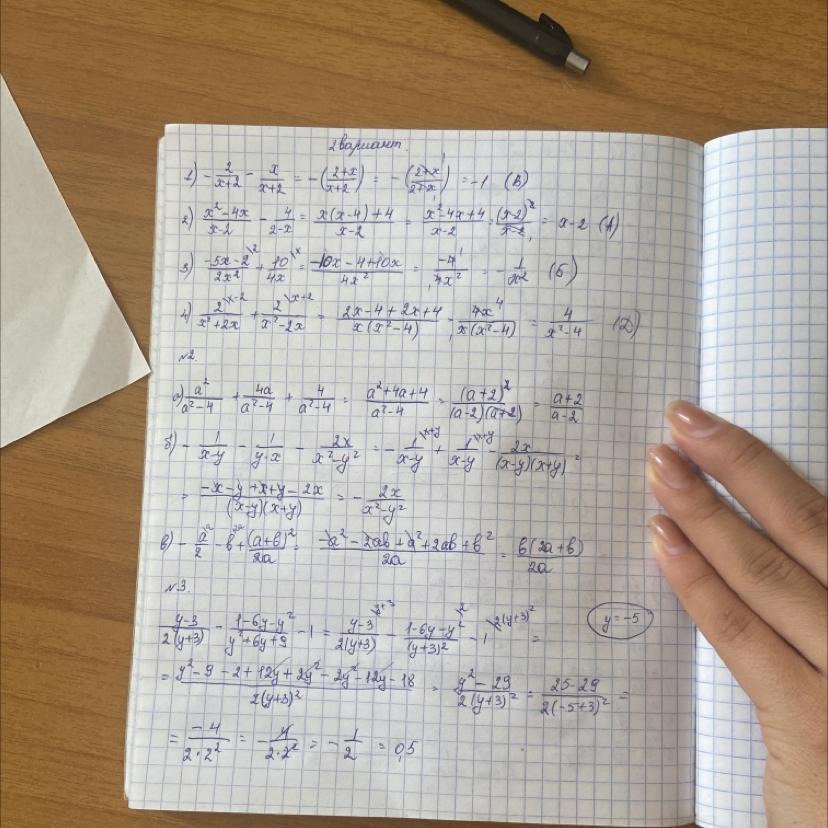 2 вариант.
1) -2/(x+2) - x/(x+2) = -((2+x)/(x+2)) = -((2+x)/(2+x)) = -1 (В)
2) (x²-4x)/(x-2) - 4/(2-x) = (x(x-4)+4)/(x-2) = (x²-4x+4)/(x-2) = (x-2)²/(x-2) = x-2 (А)
3) (-5x-2)/(2x²) + 10/(4x) = (-10x-4+10x)/(4x²) = -4/(4x²) = -1/x² (Б)
4) 2/(x²+2x) + 2/(x²-2x) = (2x-4+2x+4)/(x(x²-4)) = 4x/(x(x²-4)) = 4/(x²-4) (Д)
№2.
а) a²/(a²-4) + 4a/(a²-4) + 4/(a²-4) = (a²+4a+4)/(a²-4) = (a+2)²/((a-2)(a+2)) = (a+2)/(a-2)
б) -1/(x-y) - 1/(y-x) - 2x/(x²-y²) = -1/(x-y) + 1/(x-y) - 2x/((x-y)(x+y)) =
= (-x-y+x+y-2x)/((x-y)(x+y)) = -2x/(x²-y²)
в) -a/2 - b + (a+b)²/(2a) = (-a²-2ab+a²+2ab+b²)/(2a) = b(2a+b)/(2a)
№3.
(y-3)/(2(y+3)) - (1-6y-y²)/(y²+6y+9) - 1 = (y-3)/(2(y+3)) - (1-6y-y²)/(y+3)² - 1 = y=-5
= (y²-9-2+12y+2y²-2y²-12y-18)/(2(y+3)²) = (y²-29)/(2(y+3)²) = (25-29)/(2(-5+3)²) =
= -4/(2·2²) = -4/(2·2²) = -1/2 = 0,5